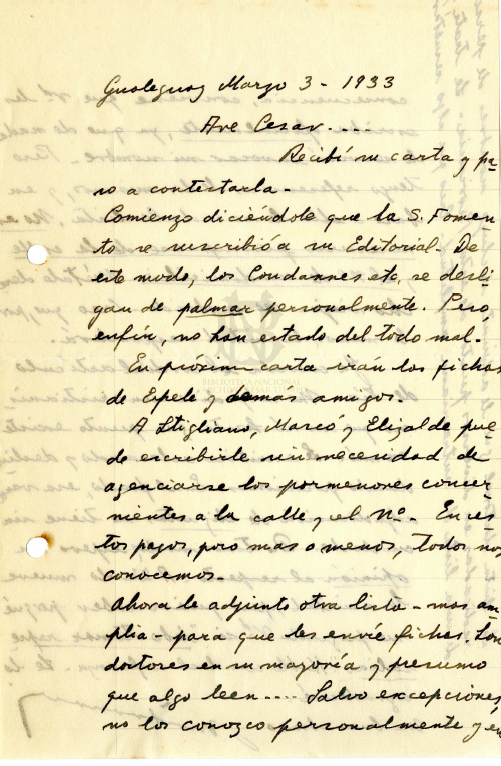 Gualeguay Marzo 3 - 1933
Ave Cesar....
Recibí su carta y pa-
so a contestarla -
Comienzo diciéndole que la S. Fomen-
to se suscribió a su Editorial. De
este modo, los Condannes etc, se desli-
gan de palmar personalmente. Pero,
enfín, no han estado del todo mal.
En próxima carta irán las fichas
de Epele y demás amigos.
BIBLIOTECA NACIONAL
A Stigliano, Marcó y Elizalde pue-
de escribirle sin necesidad de
agenciarse los pormenores concer-
nientes a la calle y el Nº. - En es-
tos pagos, poco mas o menos, todos nos
conocemos.
Ahora le adjunto otra lista - mas am-
plia - para que les envíe fichas. Son
doctores en su mayoría y presumo
que algo leen.... Salvo excepciones,
no los conozco personalmente y en